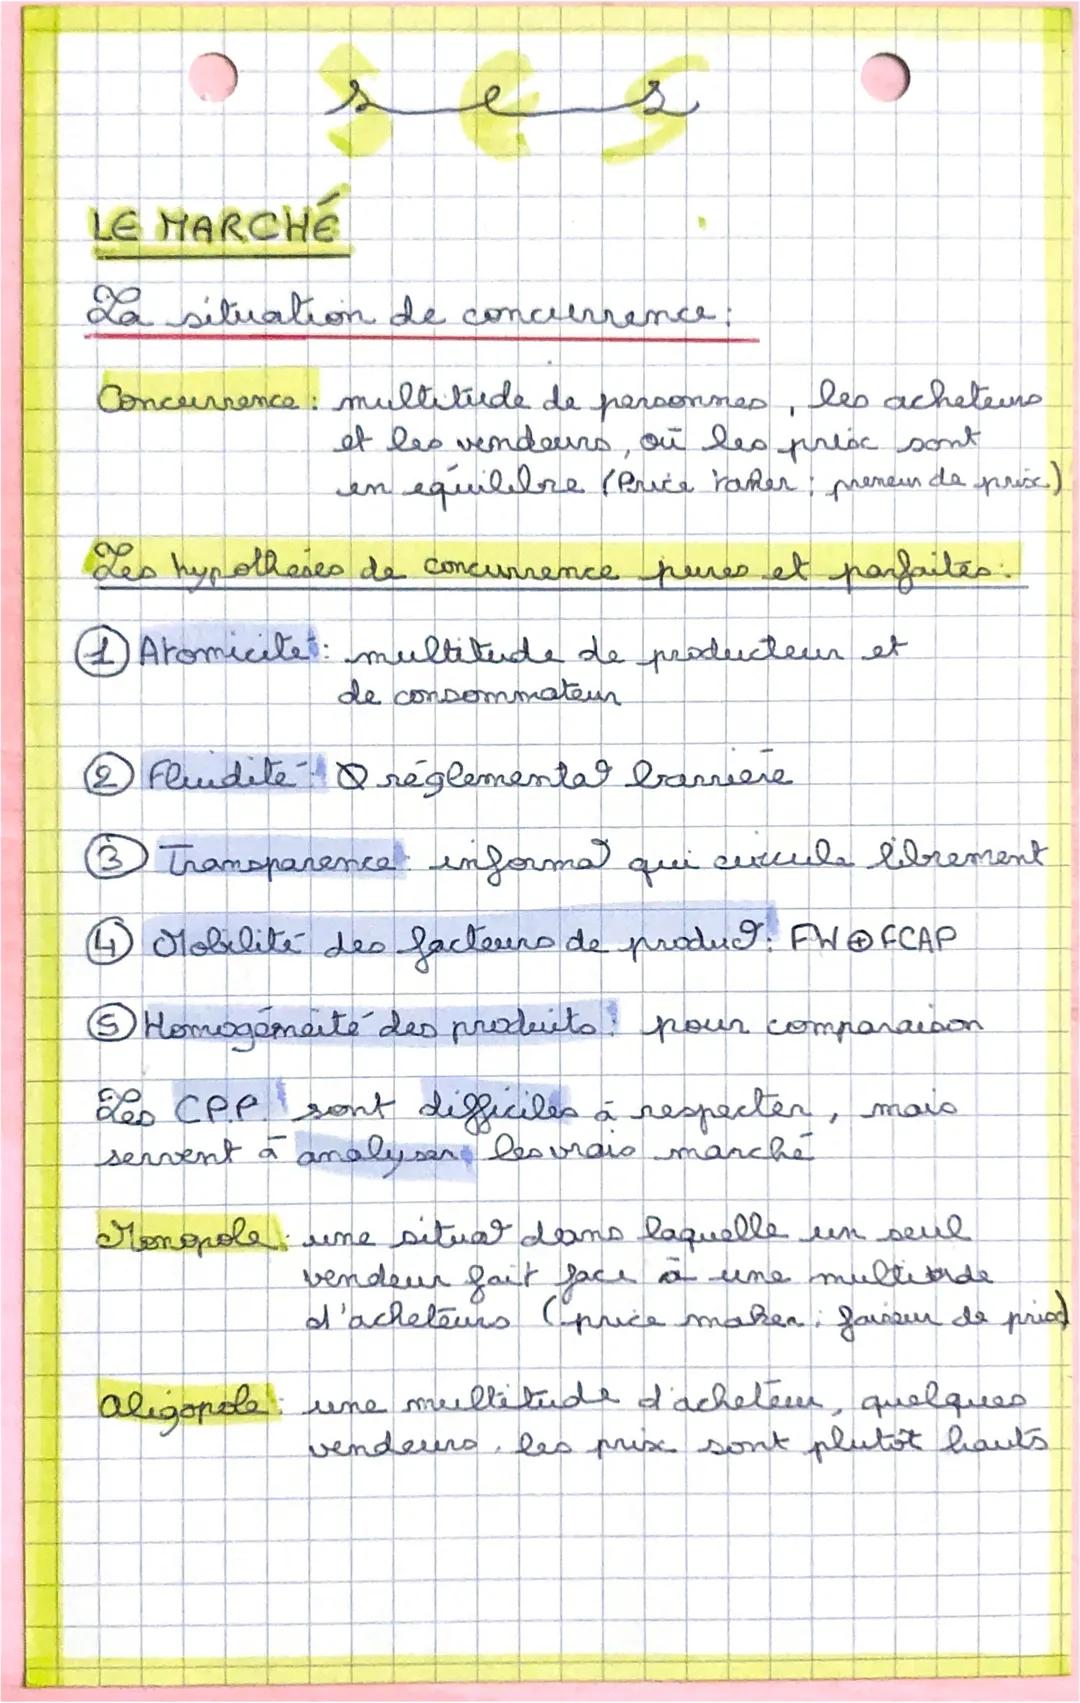 ses
LE MARCHÉ
La situation de concurrence :
Concurrence : multitude de personnes, les acheteurs
et les vendeurs, où les prix sont
en équilibre (Price taker : preneur de prix)
Les hypothèses de concurrence pures et parfaites :
① Atomicité : multitude de producteur et
de consommateur
② Fluidité : Ø réglementa° barrière
③ Transparence : informa° qui circule librement
④ Mobilité des facteurs de produc° : FW ⊕ FCAP
⑤ Homogénéité des produits : pour comparaison
Les C.P.P. sont difficiles à respecter, mais
servent à analyser les vrais marché
Monopole : une situa° dans laquelle un seul
vendeur fait face à une multitude
d'acheteurs (price maker : faiseur de prix)
Oligopole : une multitude d'acheteur, quelques
vendeurs, les prix sont plutôt hauts